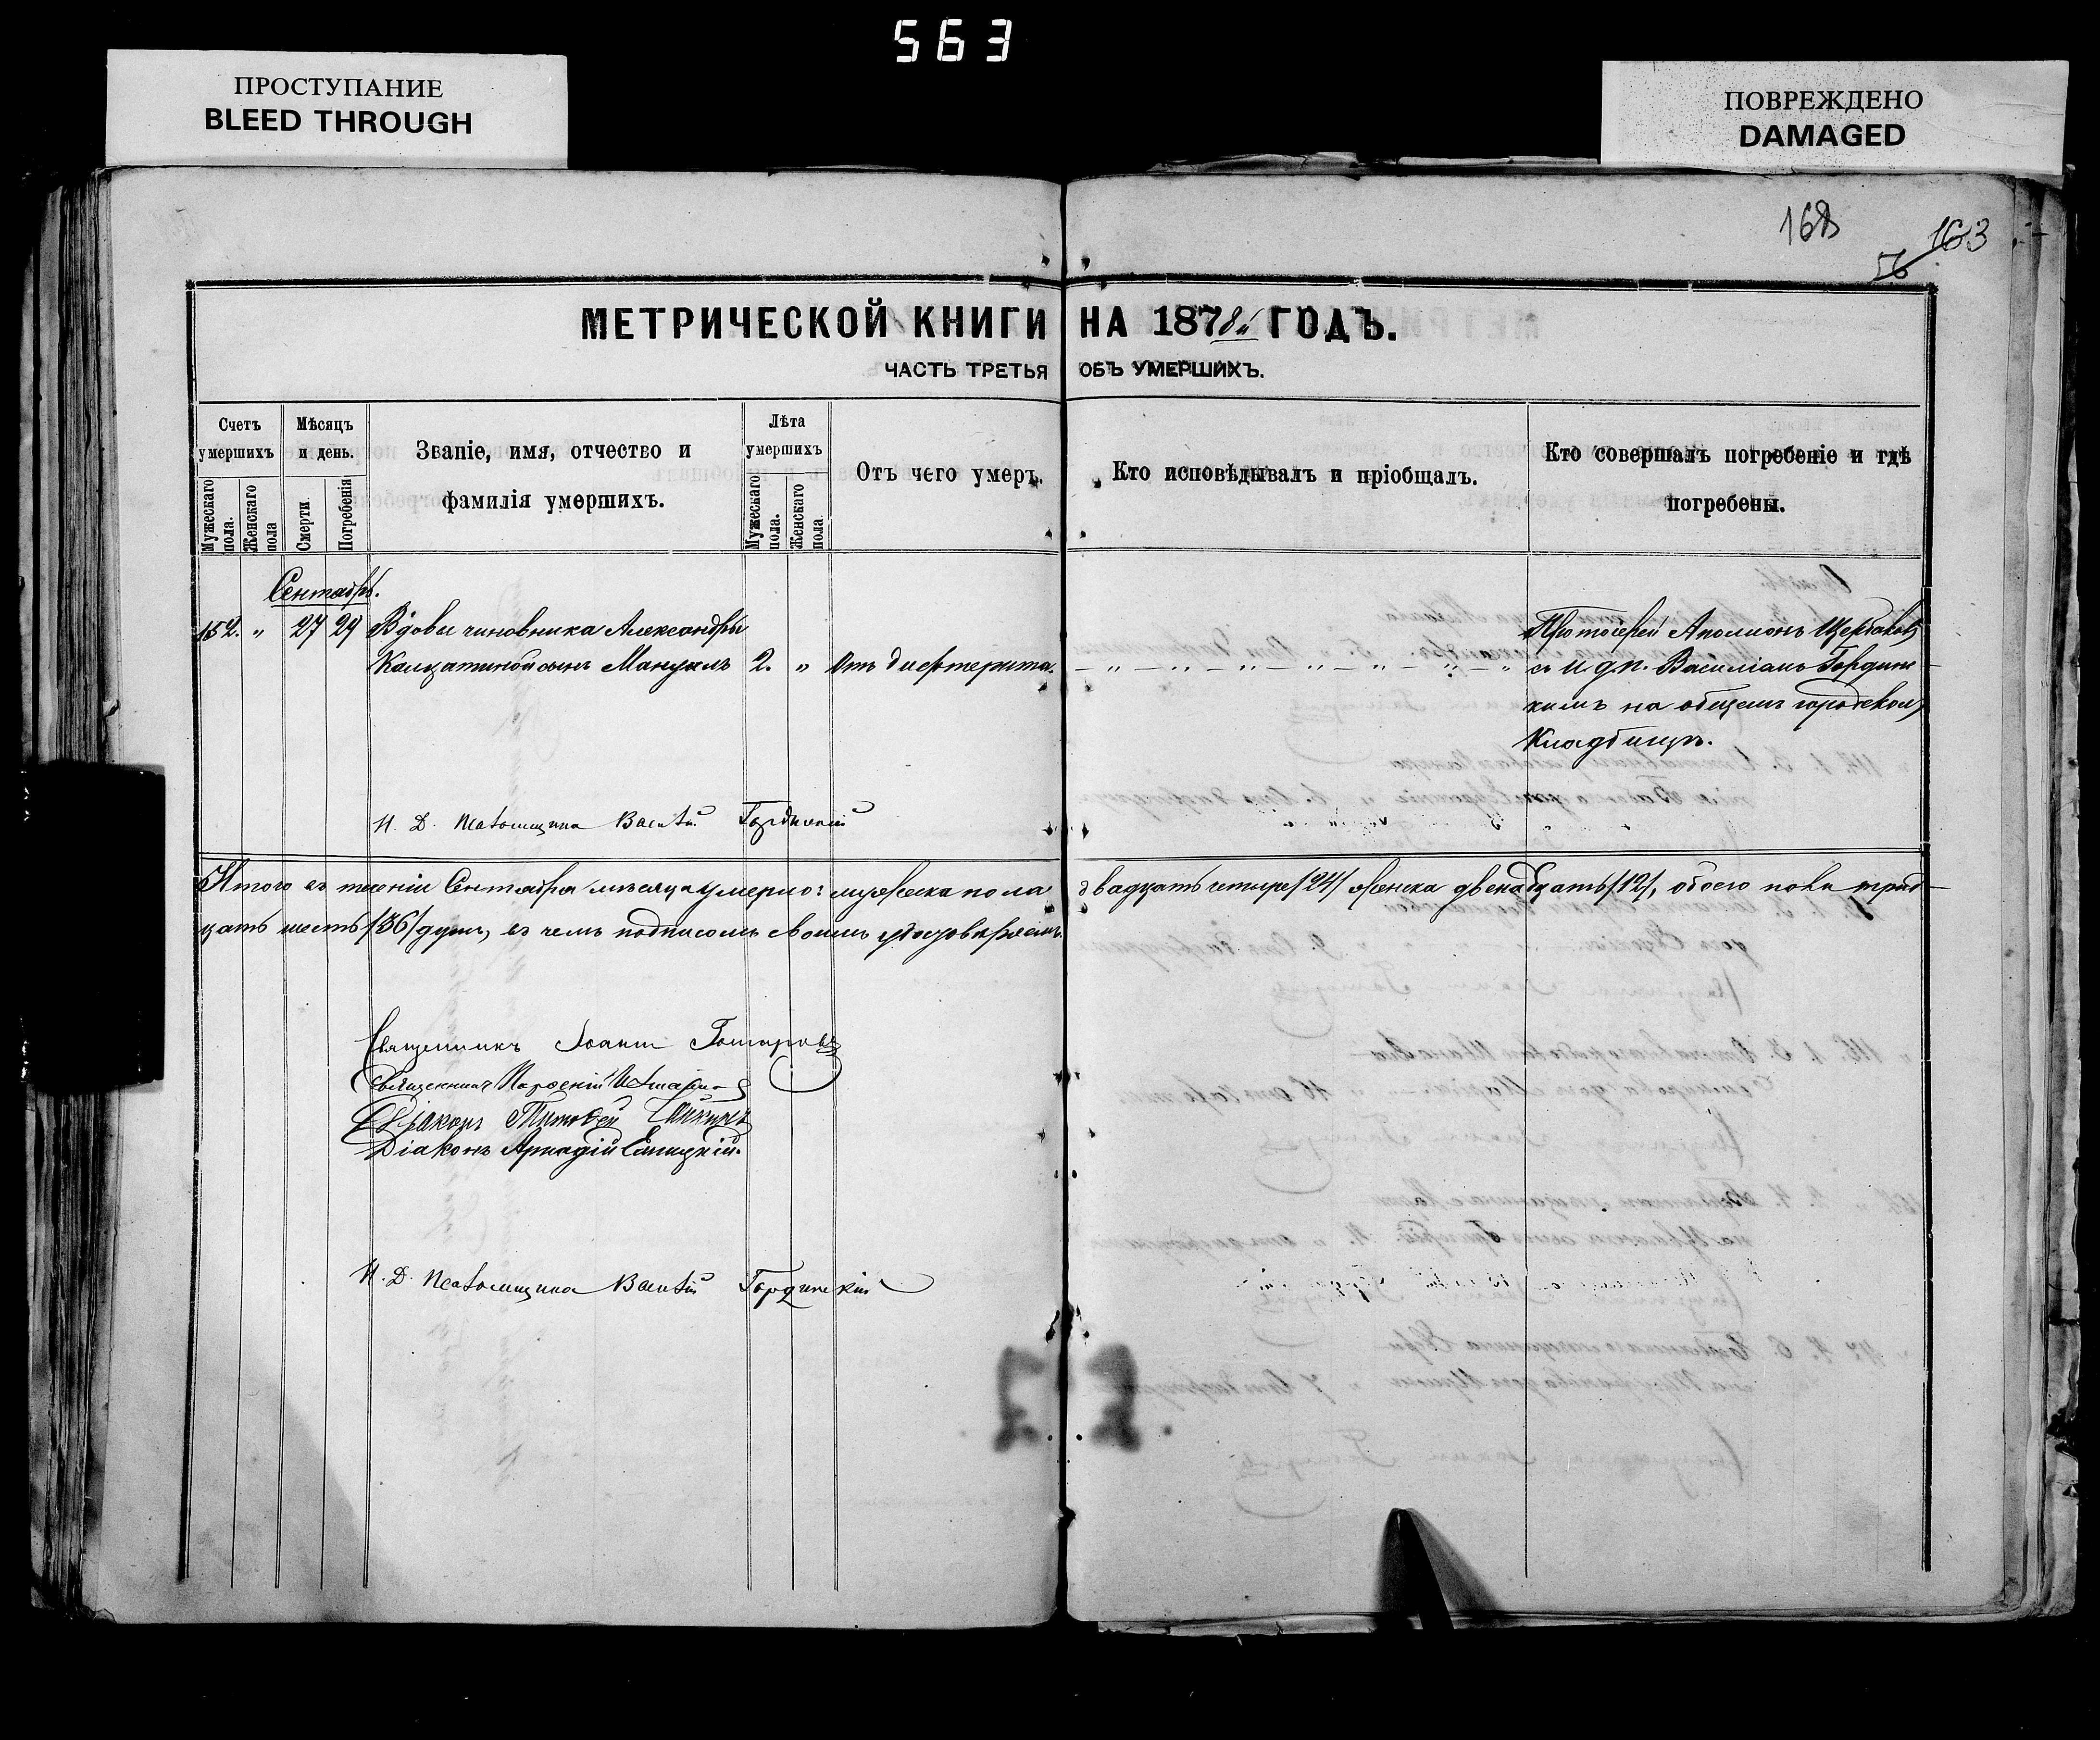 563
ПРОСТУПАНИЕ
BLEED THROUGH
ПОВРЕЖДЕНО
DAMAGED
168
163
56
МЕТРИЧЕСКОЙ КНИГИ НА 1878й ГОДЪ.
ЧАСТЬ ТРЕТЬЯ ОБЪ УМЕРШИХЪ.
Счетъ умершихъ
Мужескаго пола.
Женскаго пола
Мѣсяцъ и день.
Смерти.
Погребенія
Званіе, имя, отчество и
фамилія умершихъ.
Лѣта умершихъ
Мужескаго пола.
Женскаго пола
Отъ чего умеръ.
Кто исповѣдывалъ и пріобщалъ.
Кто совершалъ погребеніе и гдѣ
погребены.
Сентябрь.
152. " 27 29 Вдовы чиновника Александры
сынъ Мануилъ 2. " Отъ дифтерита.
Протоіерей Апполонъ Щербаковъ
съ И. д. п. Василіемъ Гординс-
кимъ на общемъ городскомъ
Кладбищѣ.
И. Д. Псаломщика Василій Гординскій
Итого въ теченіи Сентября мѣсяца умерло: мужеска пола двадцать четыре /24/ женска двенадцать /12/, обоего пола трид-
цать шесть /36/ душъ, въ чемъ подписомъ своимъ удостовѣряемъ.
Священникъ Іоаннъ
Священникъ
Діаконъ Тимофей
Діаконъ Аркадій
И. Д. Псаломщика Василій Гординскій